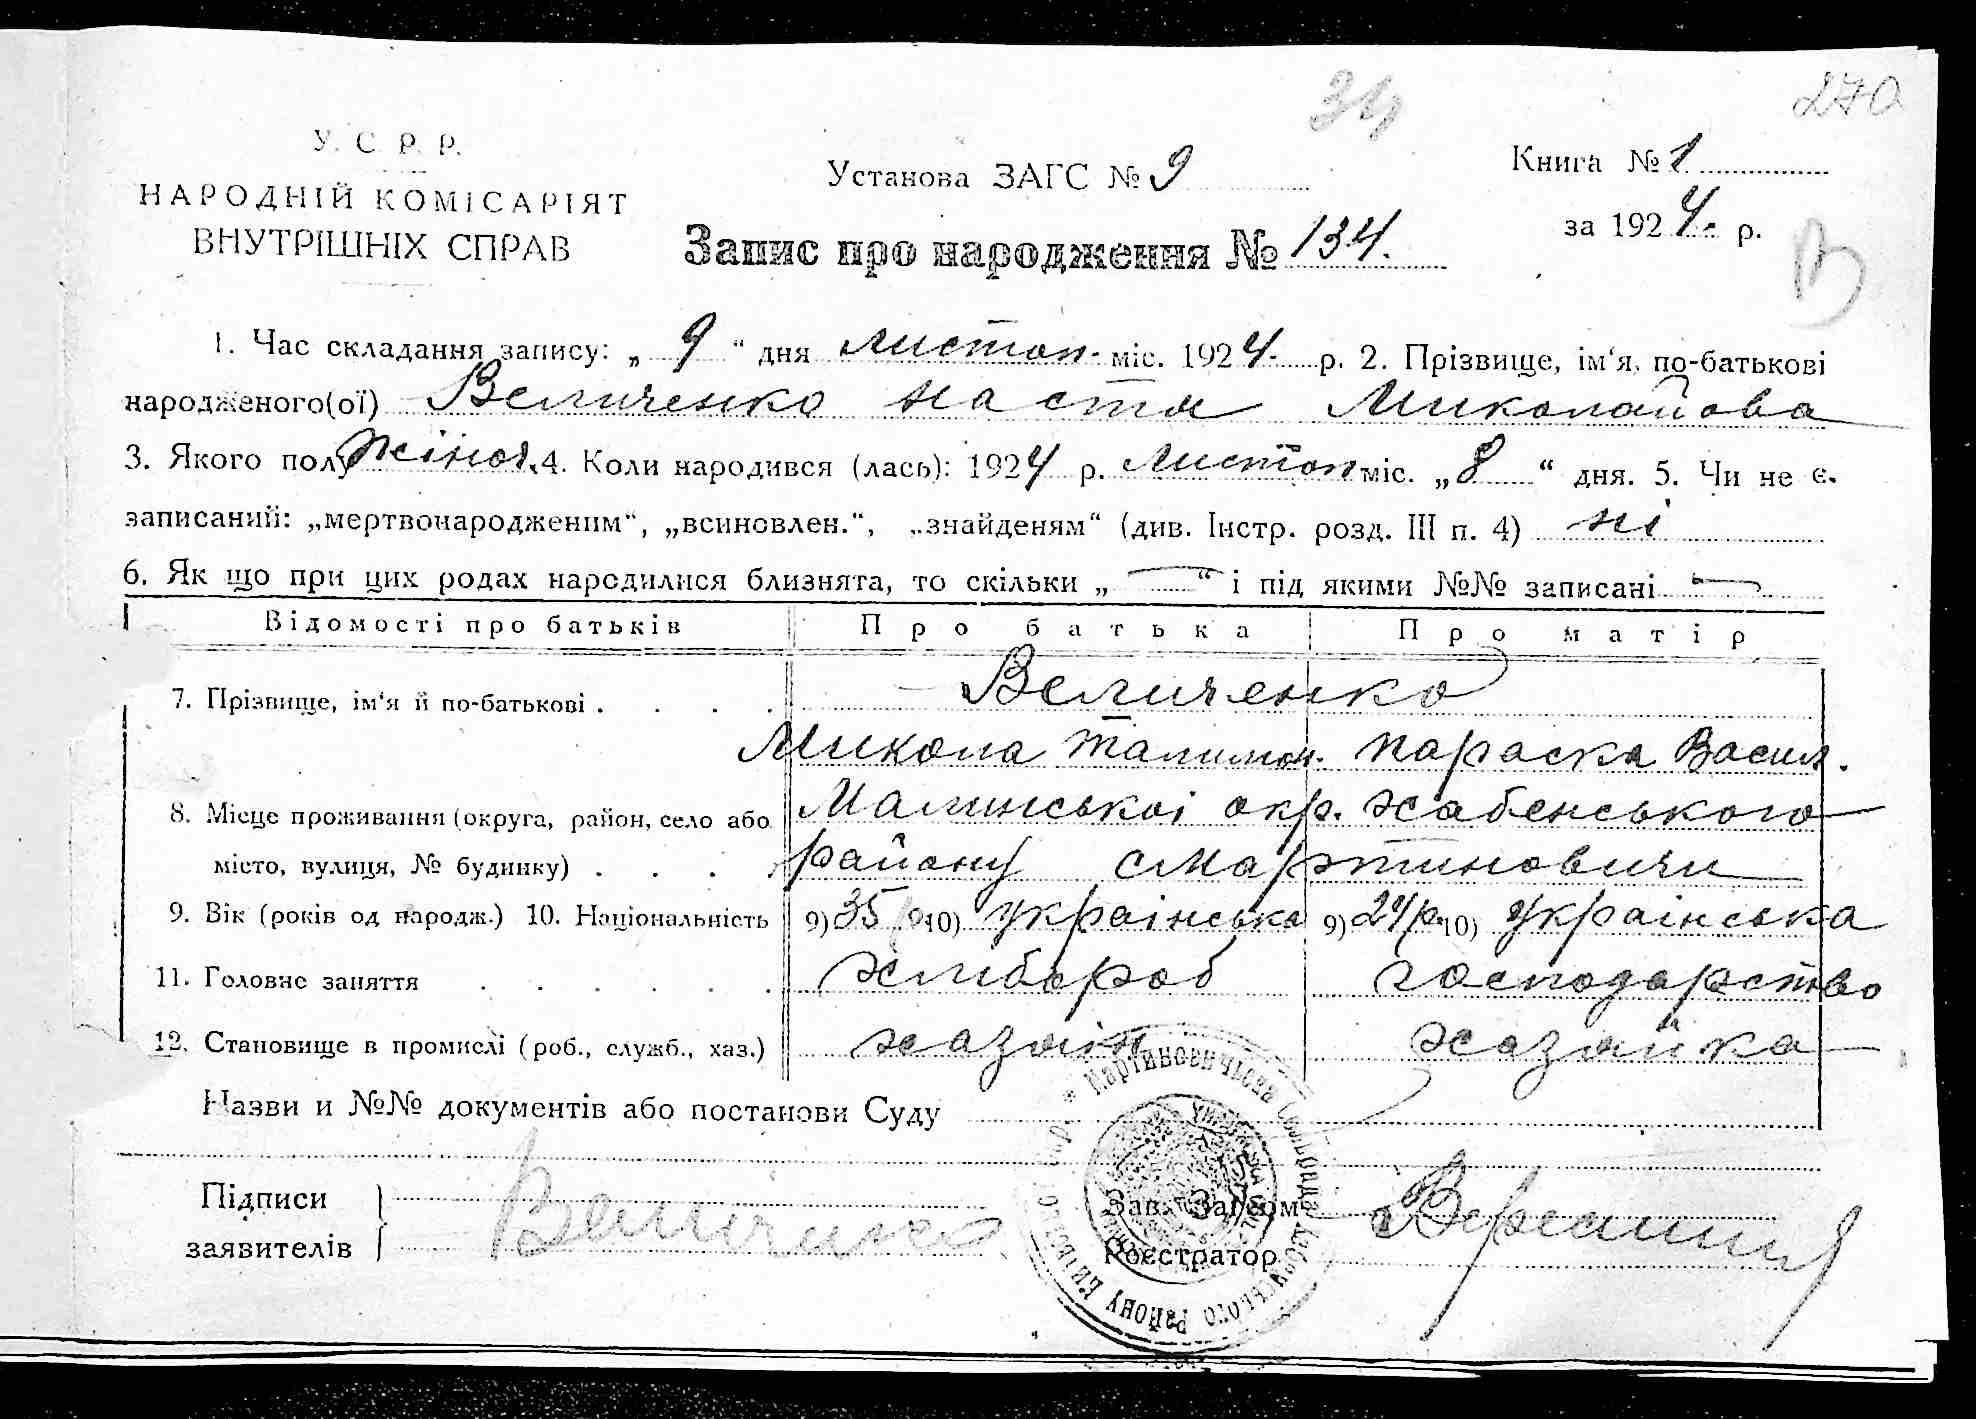 34
270
У. С. Р. Р.
НАРОДНІЙ КОМІСАРІЯТ
ВНУТРІШНІХ СПРАВ
Установа ЗАГС № 9
Книга № 1
за 1924. р.
Запис про народження № 134.
В
1. Час складання запису: „ 9 “ дня листоп. міс. 1924. р. 2. Прізвище, ім‘я, по-батькові
народженого(ої) Величенко Настя Миколайова
3. Якого полу жіноч. 4. Коли народився (лась): 1924 р. листоп міс. „ 8 “ дня. 5. Чи не є.
записаний: „мертвонародженим“, „всиновлен.“, „знайденям“ (див. Інстр. розд. III п. 4) ні
6. Як що при цих родах народилися близнята, то скільки „ — “ і під якими №№ записані —
Відомості про батьків Про батька Про матір
7. Прізвище, ім‘я й по-батькові . . . . Величенко
Микола Талимон. Параска Васил.
8. Місце проживання (округа, район, село або Малинськоі окр. Хабенського
місто, вулиця, № будинку) . . . району с Мартиновичи
9. Вік (років од народж.) 10. Національність 9) 35 р. 10) українська 9) 24 р. 10) українська
11. Головне заняття . . . . . . хлибороб господарство
12. Становище в промислі (роб., служб., хаз.) хазяін хазяйка
Назви и №№ документів або постанови Суду
Підписи
заявителів
Величенко
Зав. Загсом
Реєстратор
Мартиновичська Сельрада Хабенського Району